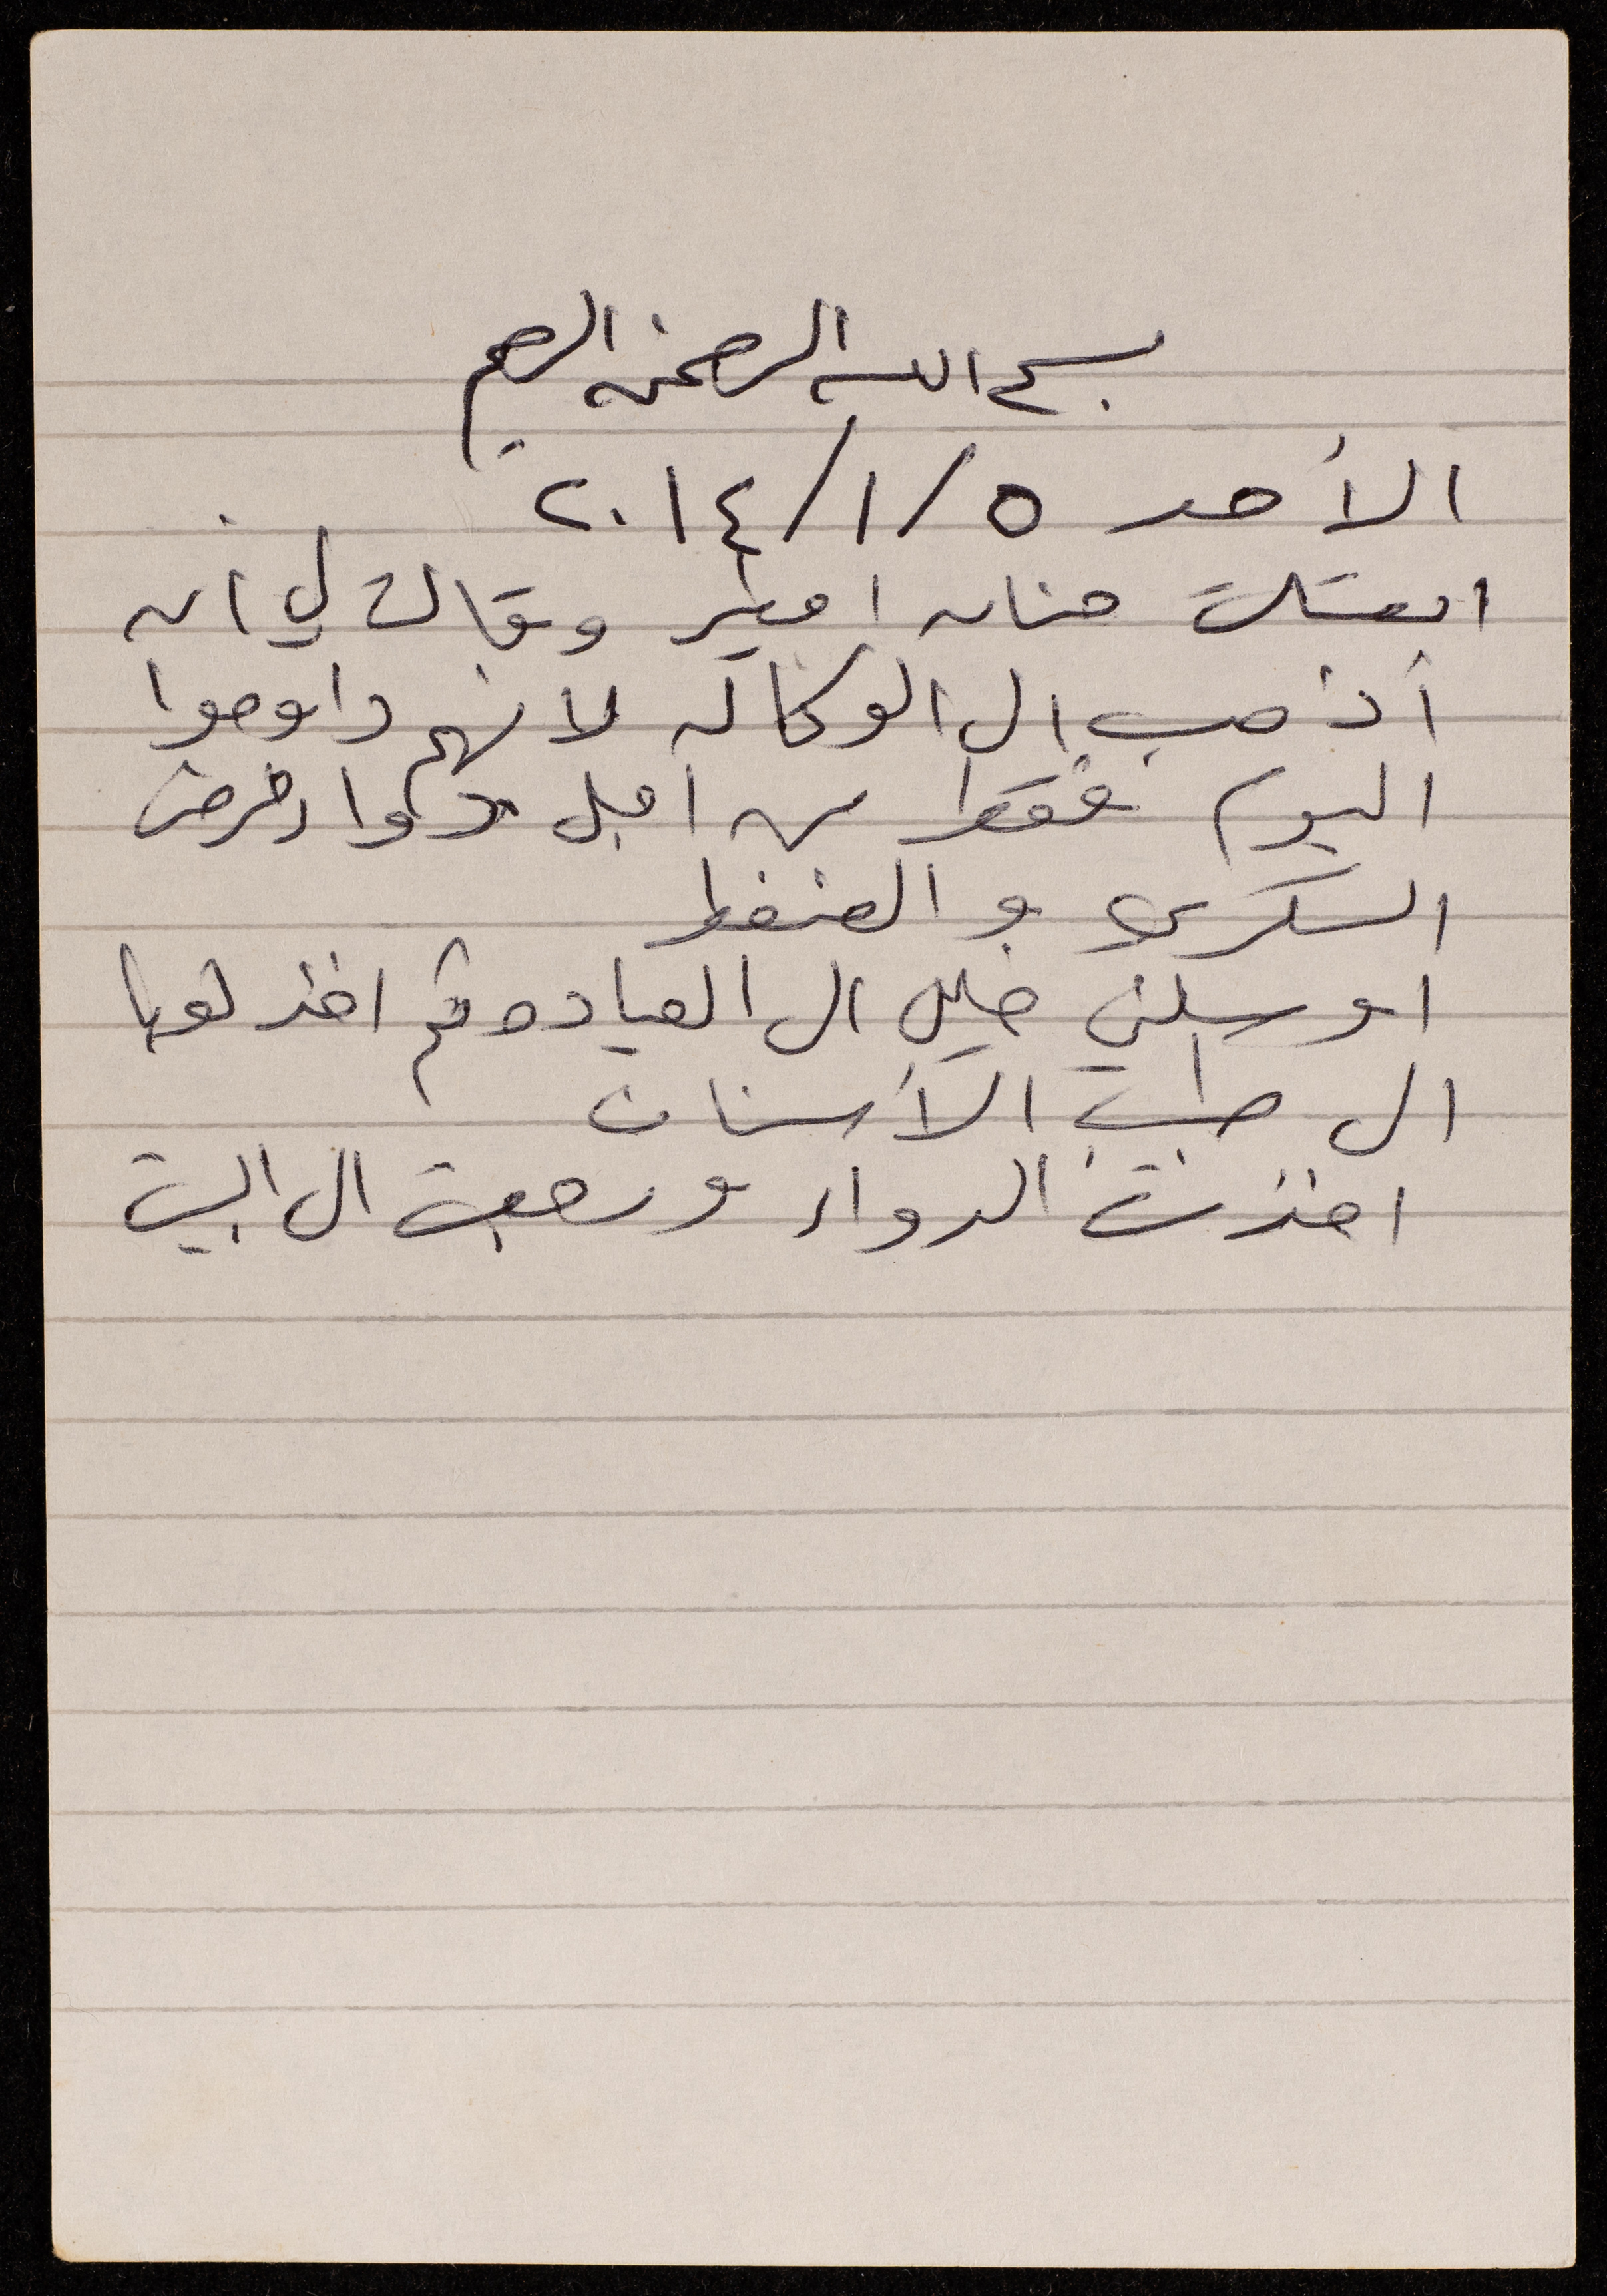 بسم الله الرحمن الرحيم
الأحد ٥/١/٢٠١٤
اتصلت حنان امطير وقالت لي ان
أذهب الى الوكالة لانهم داوموا
اليوم فقط من اجل دواء مرض
السكري و الضغط
اوصلني خليل الى العياده ثم اخذ لوبا
الى طب الأسنان
اخذت الدواء ورجعت الى البيت